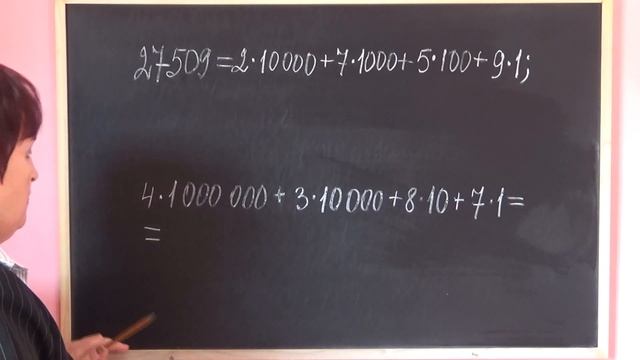 27509=2·10000+7·1000+5·100+9·1;
4·1 000 000+3·10 000+8·10+7·1=
=